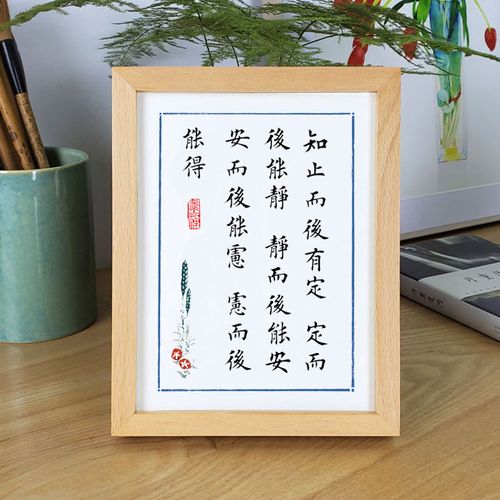 知止而後有定 定而
後能靜 靜而後能安
安而後能憲 憲而後
能得